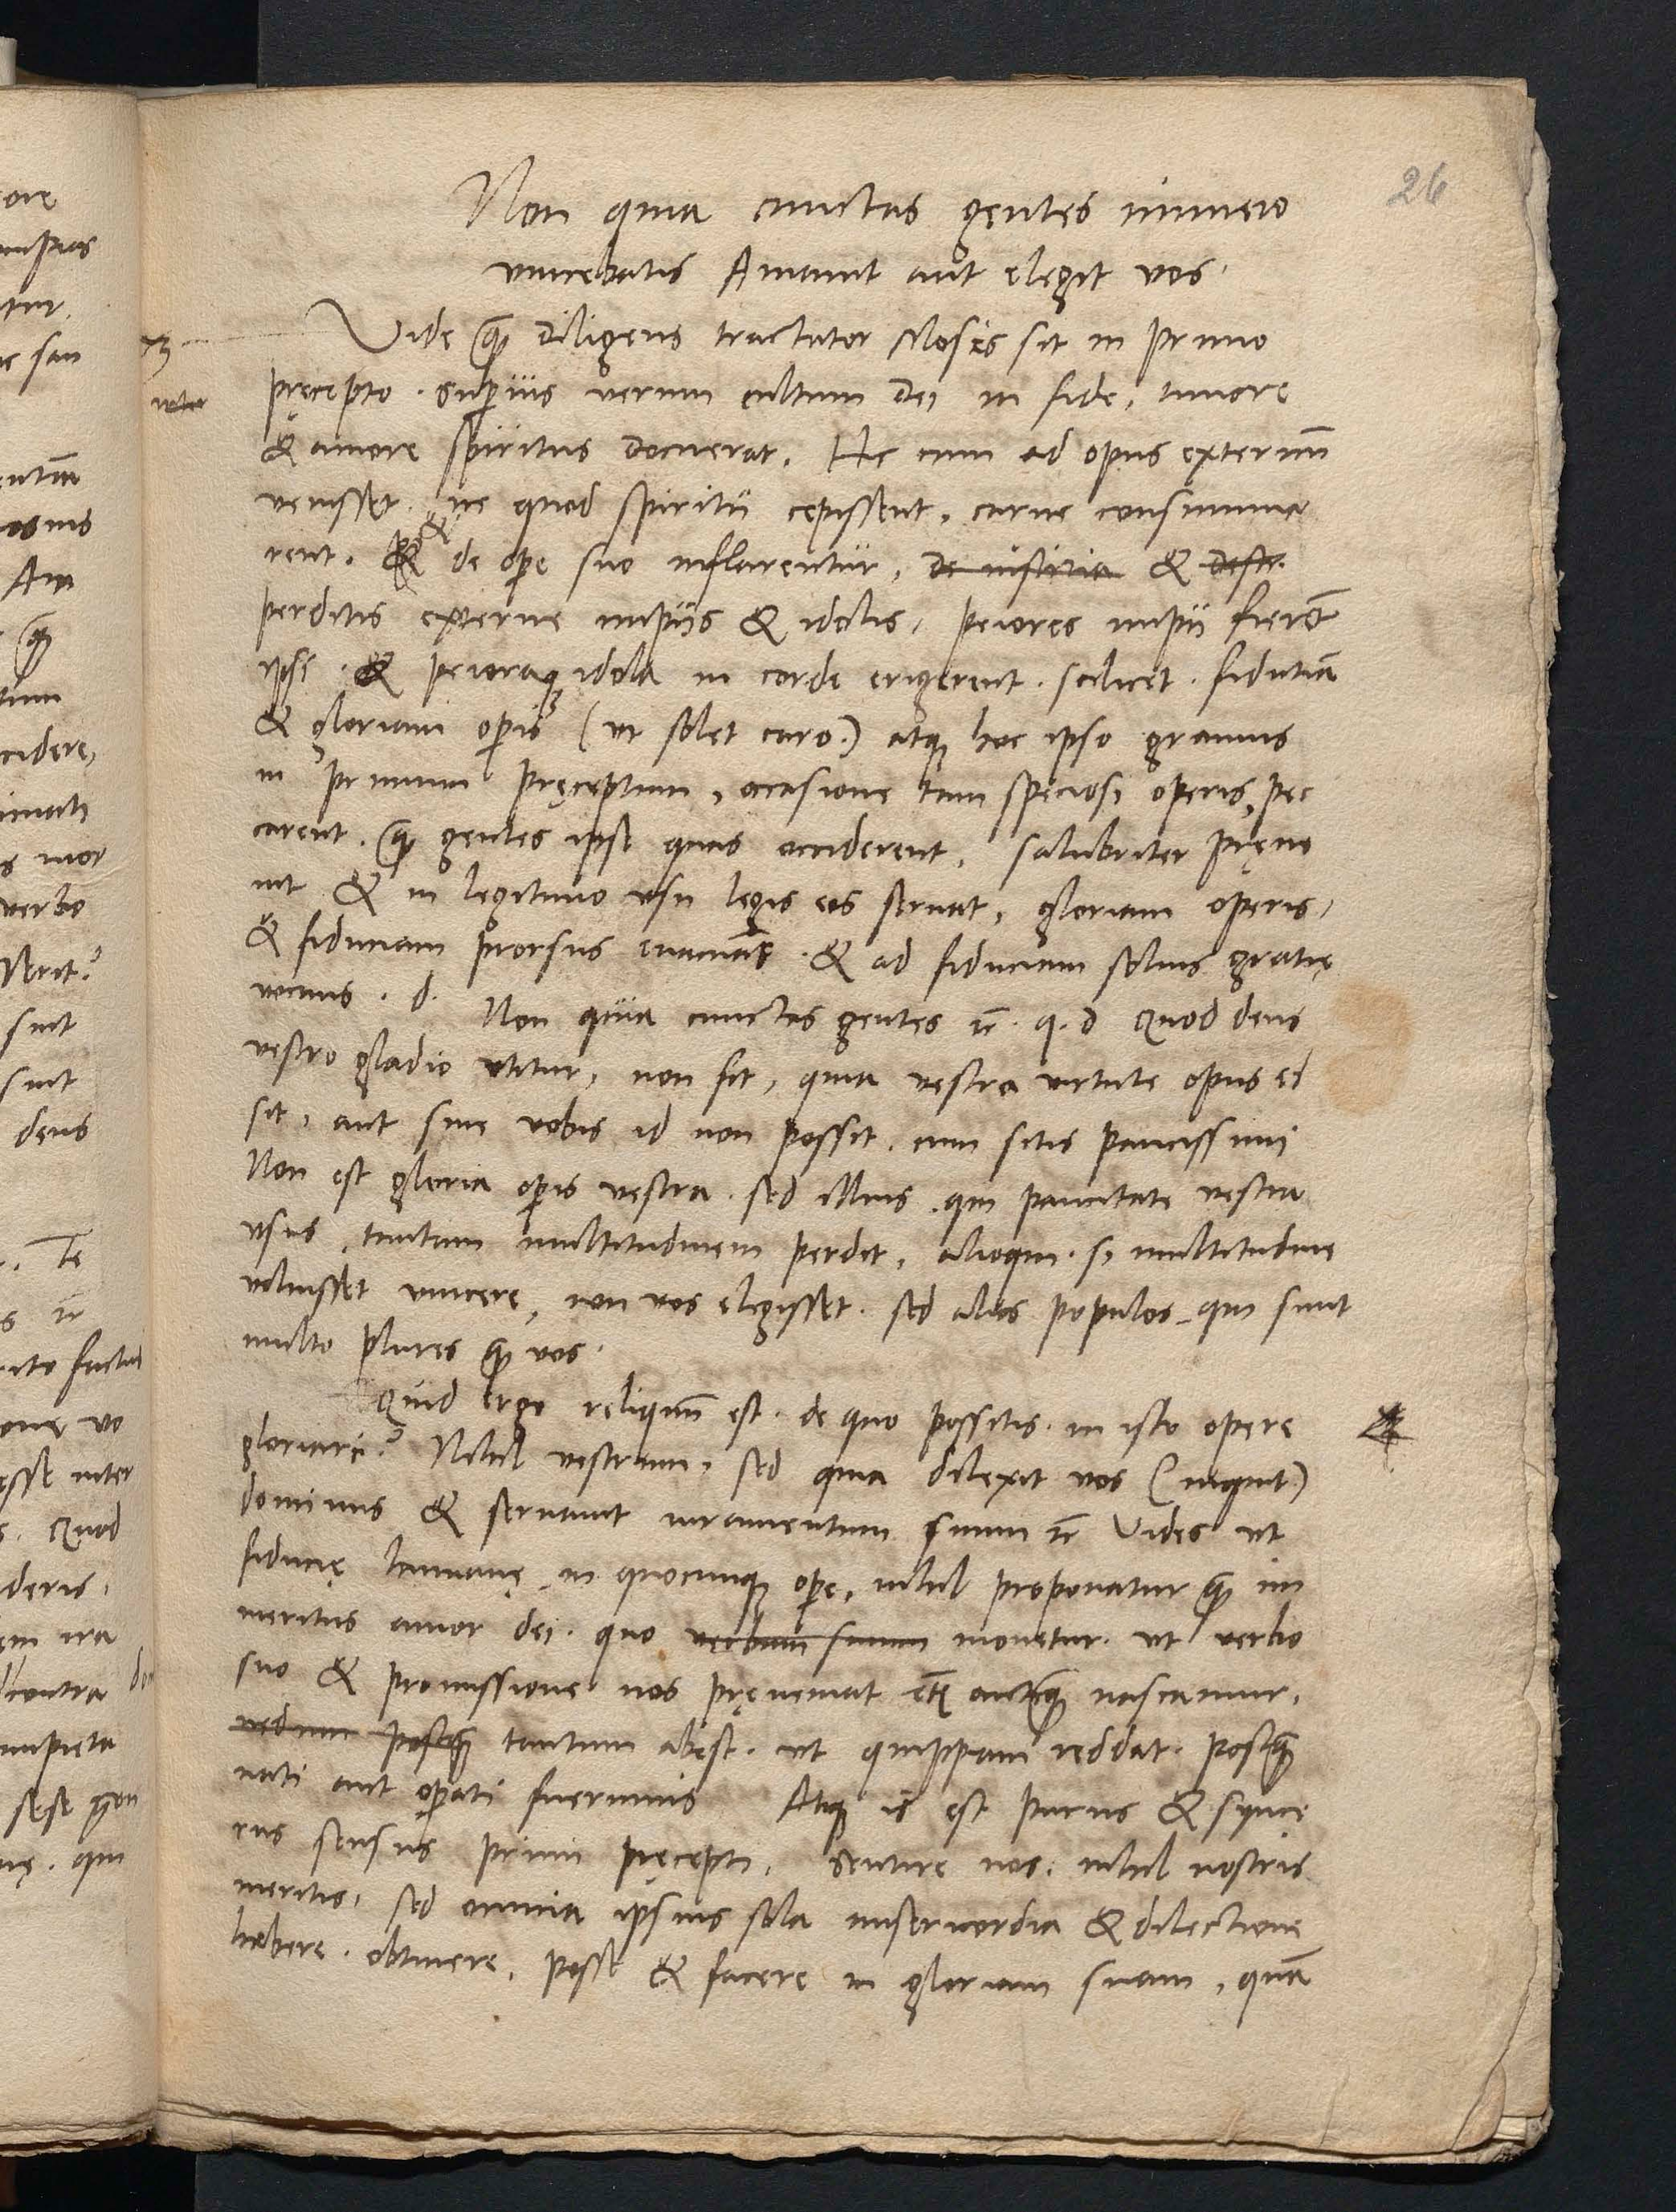 26
Non quia cunctas gentes numero
vincebatis Amauit aut elegit vos.
Vide q̃ diligens tractator Moses sit in primo
pręcepto. Superius verum cultum Dei in fide, timore
& amore spiritus docuerat. Hic cum ad opus externũ
venisset. ne quod spiritu cępissent, carne consumma
rent. & de oꝑe suo inflarentur, de iusticia & destr.
perditis externe impiis & idolis, peiores impii fierẽt
ipsi. & peioraqꝫ idola in corde erigerent. scilicet. fidutiã
& gloriam oꝑis (ut solet caro.) atqꝫ hoc ipso grauius
in primum pręceptum, occasione tam speciosi operis, pec
carent. q̃ gentes ipsę quas occiderent. salubriter pręue
nit & in legitimo vsu legis eos seruat, gloriam operis,
& fiduciam prorsus euacuãs. & ad fiduciam solius gratię
vocans. d. Non quia cunctas gentes ꝛc. q. d Quod deus
vestro gladio vtitur, non fit, quia vestra virtute opus ei
sit, aut sine vobis id non possit. cum sitis paucissimi
Non est gloria oꝑis vestra. sed illius. qui paucitate vestra
vsus, tantam multitudinem perdit, alioqui. si multitudine
voluisset vincere, non vos elegisset. sed alios populos, qui sunt
multo plures q̃ vos.
Quid ergo reliquũ est. de quo possitis. in isto opere
gloriari? Nihil vestrum. sed quia dilexit vos (inquit)
dominus & seruauit iuramentum suum ꝛc Vides ut
fiducię humanę in quocunqꝫ oꝑe, nihil proponatur q̃ im
meritus amor dei. quo verbum suum mouetur. ut verbo
suo & promissione nos pręueniat etiã anteq̃ nascamur,
nedum postq̃ tantum abest. ut quippiam reddat. postq̃
nati aut oꝑati fuerimus Atqꝫ is est purus & synce
rus sensus primi pręcepti. Sentire nos. nihil nostris
meritis, sed omnia ipsius sola misericordia & dilectione
habere. obtinere, posse & facere in gloriam suam, quã